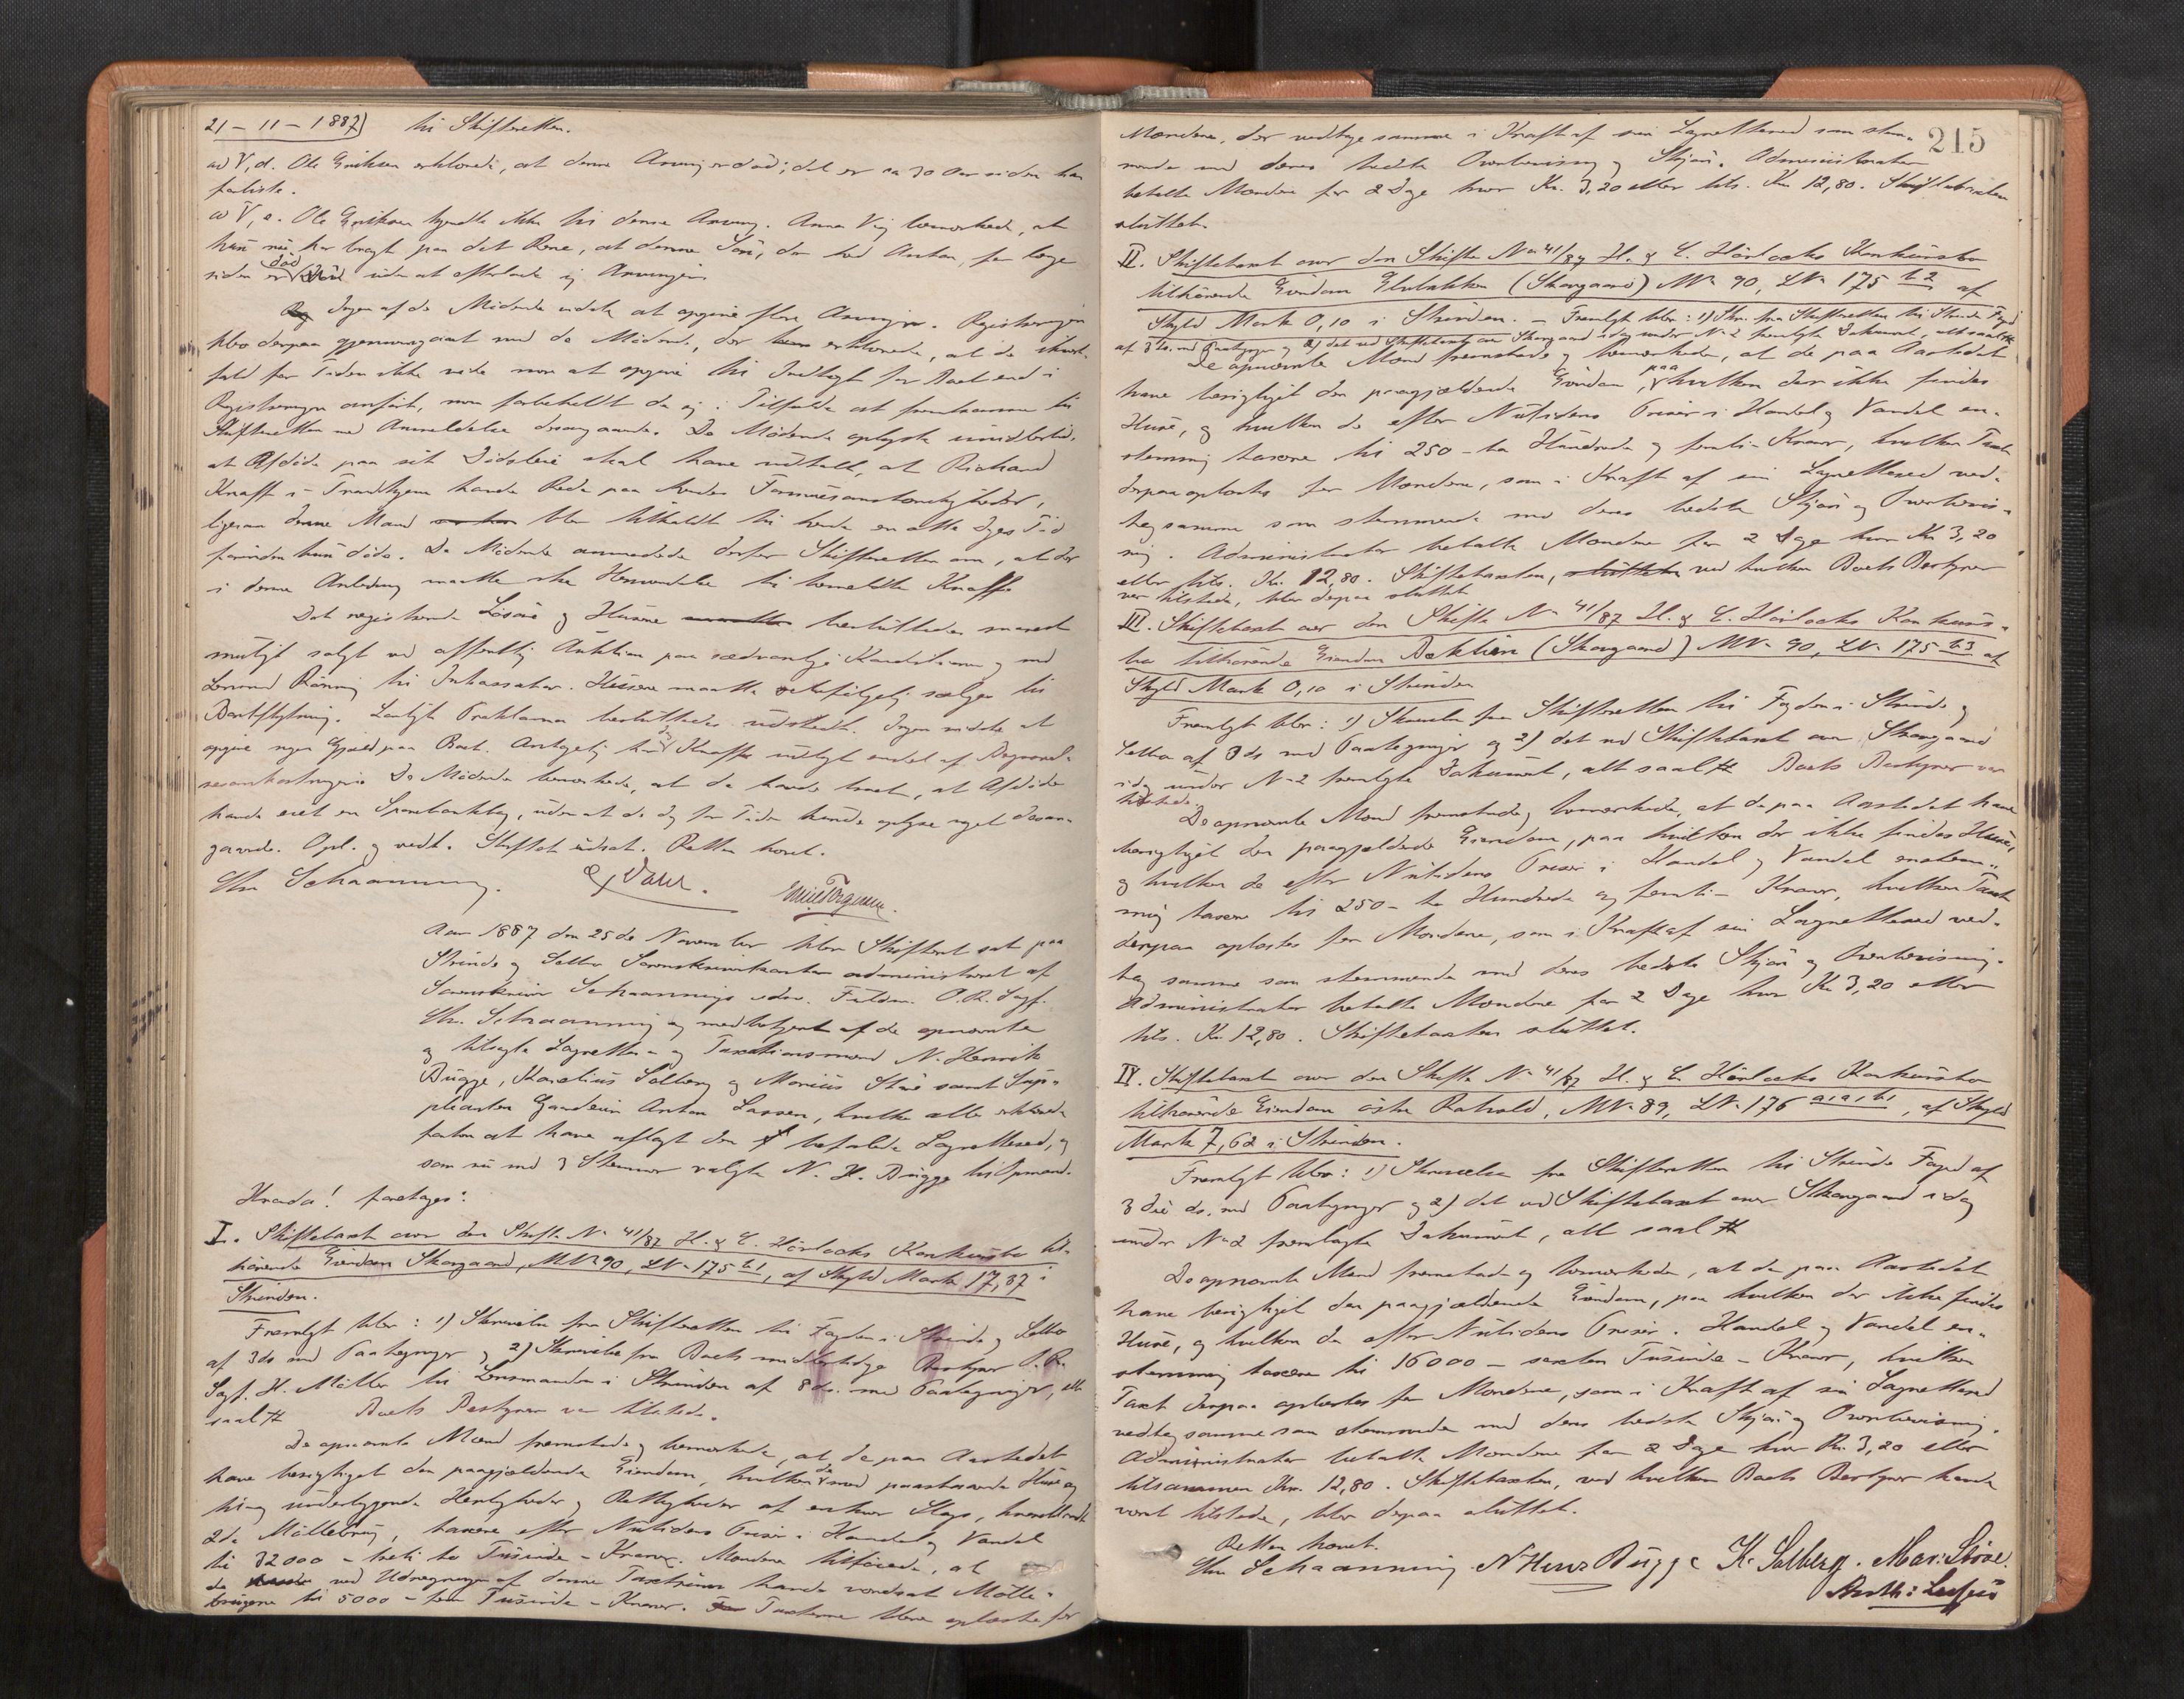 21-11-1887) til Skifteretten.
ad V, d. Ole Eriksen erklærede, at denne Arving er död; det er ca 30 Aar siden han
forliste.
ad V, e. Ole Eriksen kjendte ikke til denne Arving. Anna Vig bemærkede, at
hun nu har bragt paa det Rene, at denne Sön, der hed Anton, for længe
siden er död uden at efterlade sig Arvinger.
Ingen af de Mödende vidste at opgive flere Arvinger. Registreringen
blev derpaa gjennemgaaet med de Mödende, der erklærede, at de ihvert-
fald for Tiden ikke vide mere at opgive til Indtægt for Boet end i
Registreringen anfört, men forbeholdt de sig i Tilfælde at fremkomme til
Skifteretten med Anmeldelse desangaaende. De Mödende oplyste imidlertid,
at Afdöde paa sit Dödsleie skal have udtalt, at Richard
Knaff i Trondhjem havde Rede paa hendes Formuesomstændigheder,
ligesom denne Mand blev tilkaldt til hende en otte Dages Tid
förinden hun döde. De Mödende anmodede derfor Skifteretten om, at der
i denne Anledning maatte ske Henvendelse til bemeldte Knaff.
Det registrerede Lösöre og Husene besluttedes snarest
muligt solgt ved offentlig Auktion paa sædvanlige Konditioner og med
Lensmand Röning til Inkassator. Husene maatte selvfölgelig sælges til
Bortflytning. Lovligt Proklama besluttedes udstedt. Ingen vidste at
opgive nogen Gjæld paa Boet. Antagelig har Knaff udlagt endel af Begravel-
sesomkostningerne. De Mödende bemærkede, at de havde troet, at Afdöde
havde eiet en Sparebankbog, uden at de dog for Tiden kunde oplyse noget desan-
gaaende. Opl. og vedt. Skiftet udsat. Retten hævet.
Chr Schaanning.
Aar 1887 den 25de November blev Skifteret sat paa
Strinde og Selbu Sorenskriverkontor administreret af
Sorenskriver Schaannings edsv. Fuldm. O.R. Sagf.
Chr. Schaanning og medbetjent af de opnævnte
og tilsagte Lagrettes- og Taxationsmænd N. Henrik
Bugge, Kornelius Solberg og Marius Störe samt Sup-
pleanten Gaardeier Anton Lassen, hvilke alle erklærede
forhen at have aflagt den befalede Lagretteseed, og
som nu med 3 Stemmer valgte N. H. Bugge til Opmand.
Hvorda! foretoges:
I. Skiftetaxt over den Skifte No 41/87 H. & C. Hörlocks Konkursbo til-
hörende Eiendom Skovgaard, MNo 90, LNo 175 b1, af Skyld Mark 17,87 i
Strinden.
Fremlagt blev: 1) Skrivelse fra Skifteretten til Fogden i Strinde og Selbu
af 3ds med Paategninger og 2) Skrivelse fra Boets midlertidige Bestyrer O.R.
Sagf. H. Möller til Lensmanden i Strinden af 8ds. med Paategninger, alt
saal #. Boets Bestyrer var tilstede.
De opnævnte Mænd fremstode og bemærkede, at de paa Aastedet
have besigtiget den paagjældende Eiendom, hvilken de med paastaaende Huse og
tilliggende Herligheder og Rettigheder af enhver Slags, herunder
2de Möllebrug, taxere efter Nutidens Priser i Handel og Vandel
til 32000 - treti to Tusinde - Kroner. Mændene tilföiede, at
de ved Udregningen af denne Taxtsum havde vurderet Mölle-
brugene til 5000 - fem Tusinde - Kroner. Taxterne bleve oplæste for
215
Mændene, der vedtoge samme i Kraft af sin Lagretteseed som stem-
mende med deres bedste Overbevisning og Skjön. Administrator
betalte Mændene for 2 Dage hver Kr. 3,20 eller tils. Kr. 12,80. Skiftetaxten
sluttet.
II. Skiftetaxt over den Skifte No 41/87 H. & C. Hörlocks Konkursbo
tilhörende Eiendom Elvebakken (Skovgaard) MNo 90, LNo 175 b2 af
Skyld Mark 0,10 i Strinden. - Fremlagt blev: 1) Skr. fra Skifteretten til Strinde Fogd
af 3ds. med Paategninger og 2) det ved Skiftetaxten over Skovgaard idag under No 2 fremlagte Dokument, alt saal #
De opnævnte Mænd fremstode og bemærkede, at de paa Aastedet
have besigtiget den paagjældende Eiendom, paa hvilken der ikke findes
Huse, og hvilken de efter Nutidens Priser i Handel og Vandel en-
stemmig taxere til 250 - to Hundrede og femti - Kroner, hvilken Taxt
derpaa oplæstes for Mændene, som i Kraft af sin Lagretteseed ved-
tog samme som stemmende med deres bedste Skjön og Overbevis-
ning. Administrator betalte Mændene for 2 Dage hver Kr 3,20
eller tils. Kr. 12,80. Skiftetaxten, ved hvilken Boets Bestyrer
var tilstede, blev derpaa sluttet.
III. Skiftetaxt over den Skifte No 41/87 H. & C. Hörlocks Konkurs-
bo tilhörende Eiendom Bakliens (Skovgaard) MNo 90, LNo 175 b3 af
Skyld Mark 0,10 i Strinden
Fremlagt blev: 1) Skrivelse fra Skifteretten til Fogden i Strinde og
Selbu af 3ds med Paategninger og 2) det ved Skiftetaxt over Skovgaard
idag under No 2 fremlagte Dokument, alt saal # Boets Bestyrer var
tilstede.
De opnævnte Mænd fremstode og bemærkede, at de paa Aastedet have
besigtiget den paagjældende Eiendom, paa hvilken der ikke findes Huse,
og hvilken de efter Nutidens Priser i Handel og Vandel enstem-
mig taxere til 250 - to Hundrede og femti - Kroner, hvilken Taxt
derpaa oplæstes for Mændene, som i Kraft af sin Lagretteseed ved-
tog samme som stemmende med deres bedste Skjön og Overbevisning.
Administrator betalte Mændene for 2 Dage hver Kr 3,20 eller
tils. Kr. 12,80. Skiftetaxten sluttet.
IV. Skiftetaxt over den Skifte No 41/87 H. & C. Hörlocks Konkursbo
tilhörende Eiendom östre Rotvold, MNo 89, LNo 176 a,a,b1, af Skyld
Mark 7,62 i Strinden.
Fremlagt blev: 1) Skrivelse fra Skifteretten til Strinde Fogd af
3die ds. med Paategninger og 2) det ved Skiftetaxt over Skovgaard idag
under No 2 fremlagte Dokument, alt saal #
De opnævnte Mænd fremstode og bemærkede, at de paa Aastedet
have besigtiget den paagjældende Eiendom, paa hvilken der ikke findes
Huse, og hvilken de efter Nutidens Priser i Handel og Vandel en-
stemmig taxere til 16000 - sexten Tusinde - Kroner, hvilken
Taxt derpaa oplæstes for Mændene, som i Kraft af sin Lagretteseed
vedtog samme som stemmende med deres bedste Skjön og Overbevisning.
Administrator betalte Mændene for 2 Dage hver Kr. 3,20 eller
tilsammen Kr. 12,80. Skiftetaxten, ved hvilken Boets Bestyrer havde
været tilstede, blev derpaa sluttet.
Retten hævet.
Chr Schaanning N Henr Bugge K. Solberg. Mar: Störe.